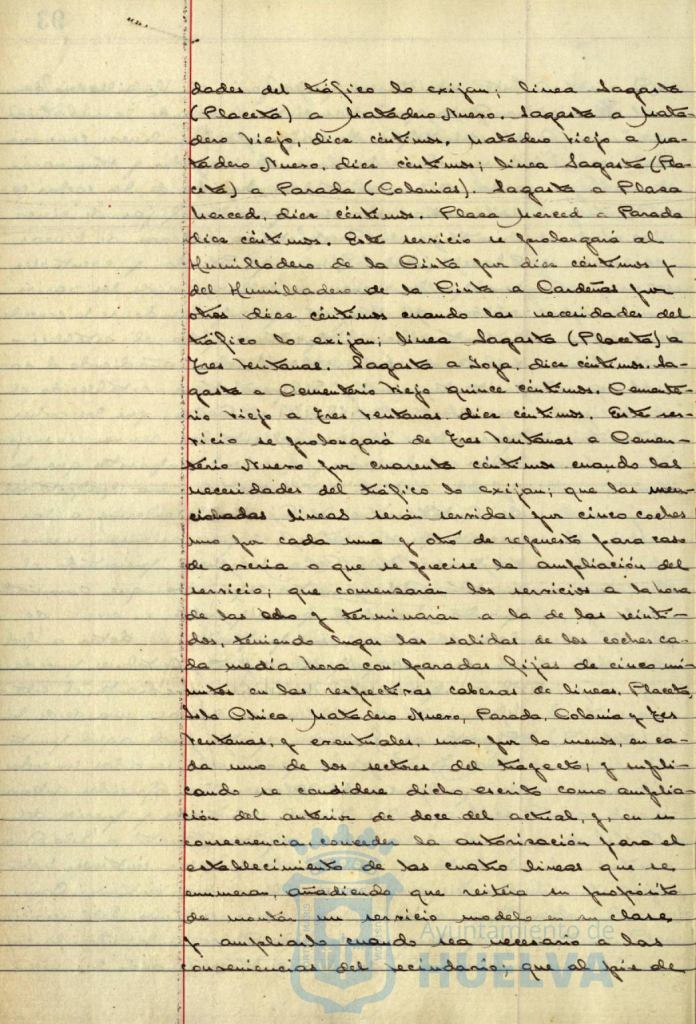 dades del tráfico lo exijan; línea Sagasta
(Placeta) a Matadero Nuevo. Sagasta a Mata-
dero Viejo, diez céntimos. Matadero Viejo a Ma-
tadero Nuevo, diez céntimos; línea Sagasta (Pla-
ceta) a Parada (Colonias). Sagasta a Plaza
Merced, diez céntimos. Plaza Merced a Parada
diez céntimos. Este servicio se prolongará al
Humilladero de la Cinta por diez céntimos y
del Humilladero de la Cinta a Cardeñas por
otros diez céntimos cuando las necesidades del
tráfico lo exijan; línea Sagasta (Placeta) a
Tres Ventanas. Sagasta a Goya, diez céntimos. Sa-
gasta a Cementerio Viejo quince céntimos. Cemente-
rio Viejo a Tres Ventanas, diez céntimos. Este ser-
vicio se prolongará de Tres Ventanas a Cemen-
terio Nuevo por cuarenta céntimos cuando las
necesidades del tráfico lo exijan; que las men-
cionadas líneas serán servidas por cinco coches
uno por cada una y otro de repuesto para caso
de avería o que se precise la ampliación del
servicio; que comenzarán los servicios a la hora
de las ocho y terminarán a la de las veinti-
dos, teniendo lugar las salidas de los coches ca-
da media hora con paradas fijas de cinco mi-
nutos en las respectivas cabezas de líneas, Placeta,
Isla Chica, Matadero Nuevo, Parada, Colonia y Tres
Ventanas, y eventuales, una, por lo menos, en ca-
da uno de los sectores del trayecto; y supli-
cando se considere dicho escrito como amplia-
ción del anterior de doce del actual, y, en su
consecuencia, conceder la autorización para el
establecimiento de las cuatro líneas que se
enumeran, añadiendo que reitera su propósito
de montar un servicio modelo en su clase
y ampliarlo cuando sea necesario a las
conveniencias del vecindario; que al pie de
Ayuntamiento de
HUELVA